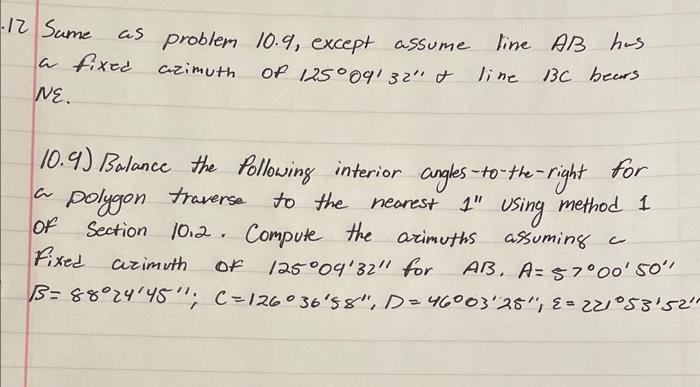 .12 Same as problem 10.9, except assume line AB has
a fixed azimuth of 125°09'32" & line BC bears
NE.
10.9) Balance the following interior angles-to-the-right for
a polygon traverse to the nearest 1" using method 1
of Section 10.2. Compute the azimuths assuming a
fixed azimuth of 125°09'32" for AB. A=57°00'50"
B=88°24'45"; C=126°36'58", D=46°03'25", E=221°53'52"